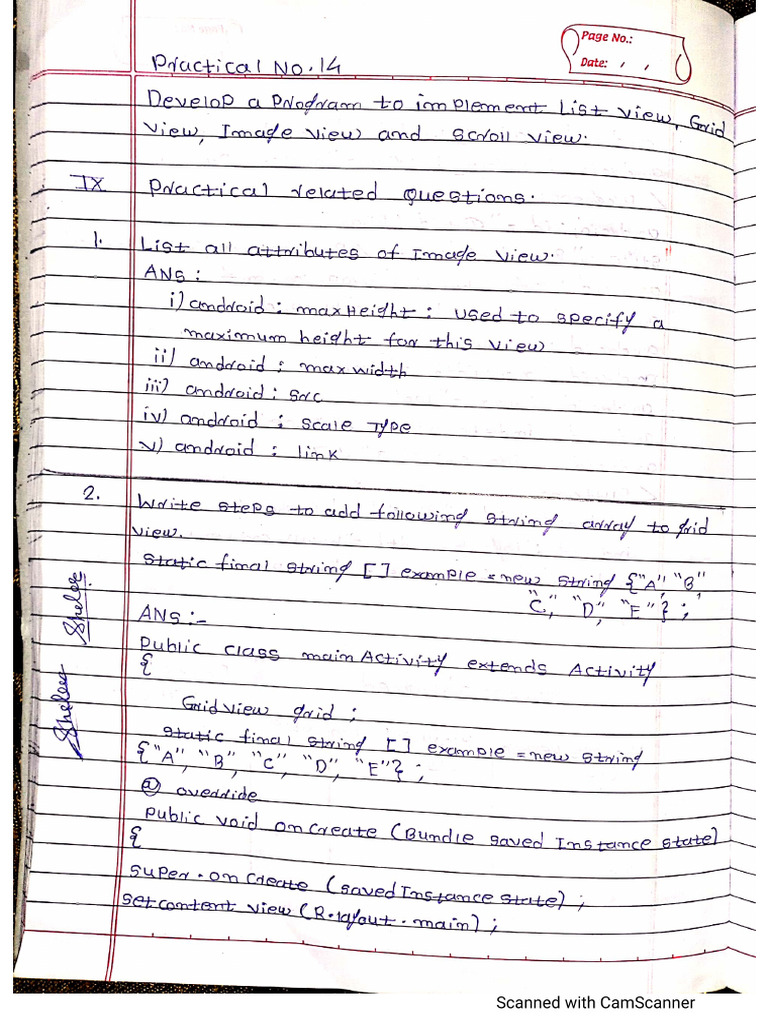 Page No.:
Date: / /
Practical No. 14
Develop a program to implement List view, Grid
view, Image view and scroll view.
IX Practical related questions.
1. List all attributes of Image view.
ANS :
i) android : maxHeight : used to specify a
maximum height for this view
ii) android : max width
iii) android : src
iv) android : scale Type
v) android : link
2. Write steps to add following string array to grid
view.
static final string [ ] example = new string {"A", "B"
"C", "D", "E"} ;
ANS :-
Public class main Activity extends Activity
{
Gridview grid ;
static final string [ ] example = new string
{"A", "B", "C", "D", "E"} ;
@ override
public void on create (Bundle saved Instance state)
{
super . on create (saved Instance state) ;
setcontent view (R . layout . main) ;
Scanned with CamScanner